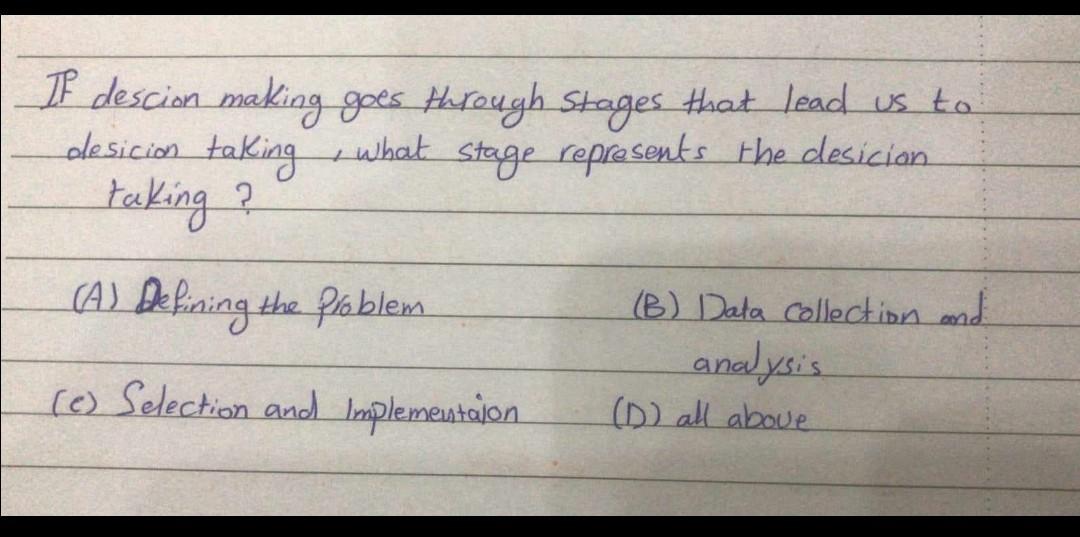 IF descion making goes through stages that lead us to
desicion taking , what stage represents the desicion
taking ?
(A) Defining the Problem (B) Data collection and
analysis
(c) Selection and Implementaion (D) all above